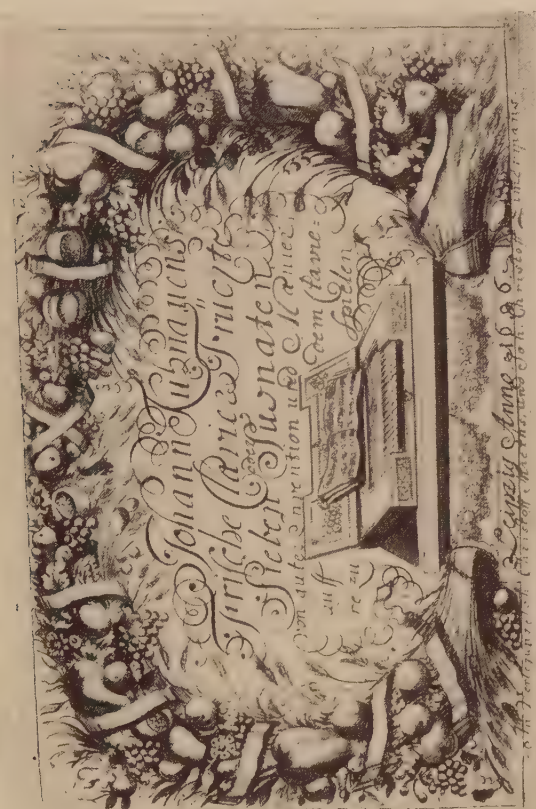 Johann Kuhnauens
Frische Clavier Früchte
oder
Sieben Suonaten
von guter Invention und Manier
auff dem Clavie-
re zu spielen
Leipzig Anno 1696
Joh. Christoph